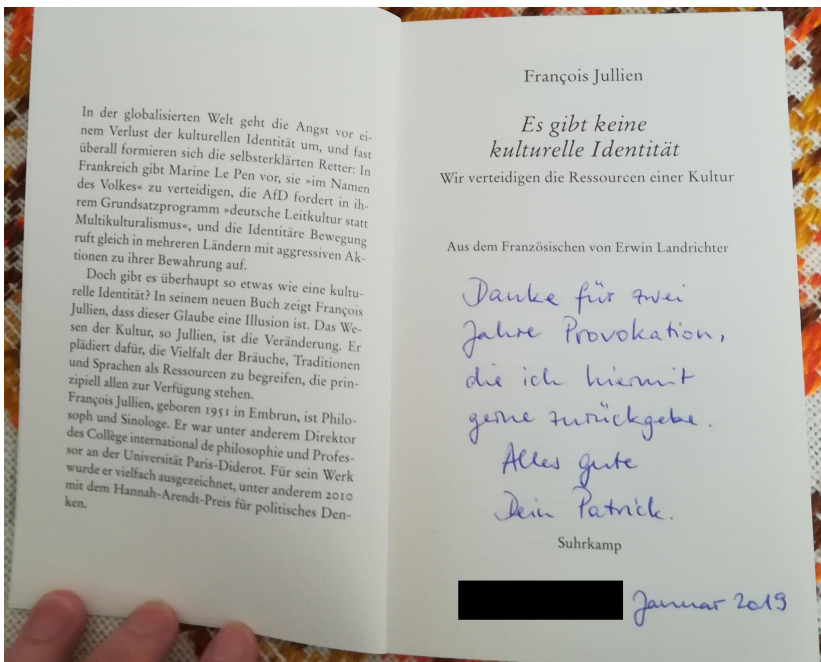 In der globalisierten Welt geht die Angst vor ei-
nem Verlust der kulturellen Identität um, und fast
überall formieren sich die selbsterklärten Retter: In
Frankreich gibt Marine Le Pen vor, sie »im Namen
des Volkes« zu verteidigen, die AfD fordert in ih-
rem Grundsatzprogramm »deutsche Leitkultur statt
Multikulturalismus«, und die Identitäre Bewegung
ruft gleich in mehreren Ländern mit aggressiven Ak-
tionen zu ihrer Bewahrung auf.
Doch gibt es überhaupt so etwas wie eine kultu-
relle Identität? In seinem neuen Buch zeigt François
Jullien, dass dieser Glaube eine Illusion ist. Das We-
sen der Kultur, so Jullien, ist die Veränderung. Er
plädiert dafür, die Vielfalt der Bräuche, Traditionen
und Sprachen als Ressourcen zu begreifen, die prin-
zipiell allen zur Verfügung stehen.
François Jullien, geboren 1951 in Embrun, ist Philo-
soph und Sinologe. Er war unter anderem Direktor
des Collège international de philosophie und Profes-
sor an der Universität Paris-Diderot. Für sein Werk
wurde er vielfach ausgezeichnet, unter anderem 2010
mit dem Hannah-Arendt-Preis für politisches Den-
ken.
François Jullien
Es gibt keine
kulturelle Identität
Wir verteidigen die Ressourcen einer Kultur
Aus dem Französischen von Erwin Landrichter
Danke für zwei
Jahre Provokation,
die ich hiermit
gerne zurückgebe.
Alles gute
Dein Patrick.
Suhrkamp
Januar 2019